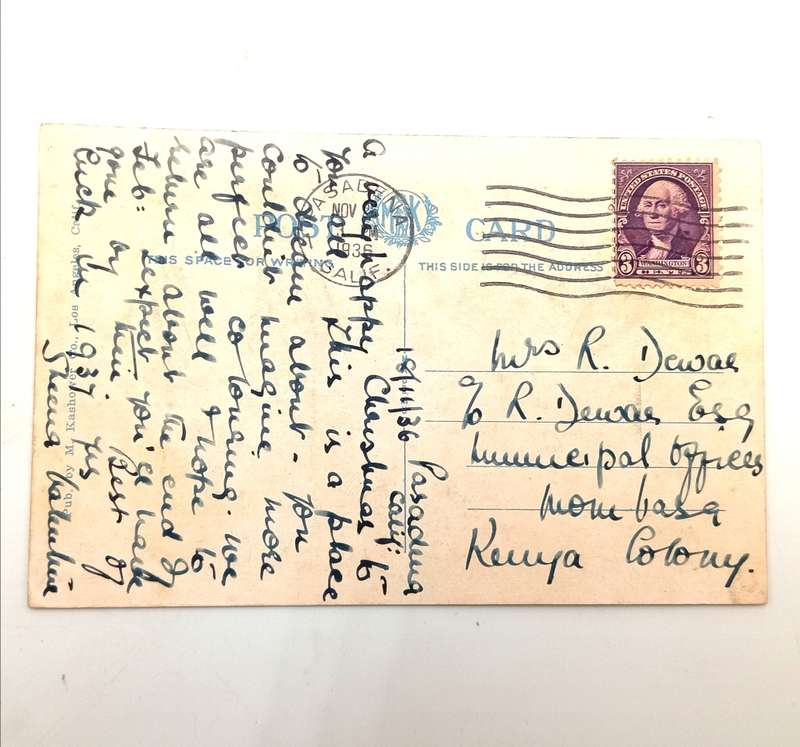 Pasadena
Calif:
18/11/36
A very happy Christmas to
you all. This is a place
to dream about – you
couldn't imagine more
perfect colouring. We
are all well & hope to
return about the end of
Feb: Expect you'll have
gone by then. Best of
luck in 1937. Yrs
Sheena
Pub. by M. Kashower Co., Los Angeles, Calif.
POST CARD
THIS SPACE FOR WRITING
THIS SIDE IS FOR THE ADDRESS
PASADENA
NOV
1936
CALIF.
UNITED STATES POSTAGE
WASHINGTON
3 CENTS 3
Mrs R. Dewar
c/o R. Dewar Esq
Municipal Offices
Mombasa
Kenya Colony.